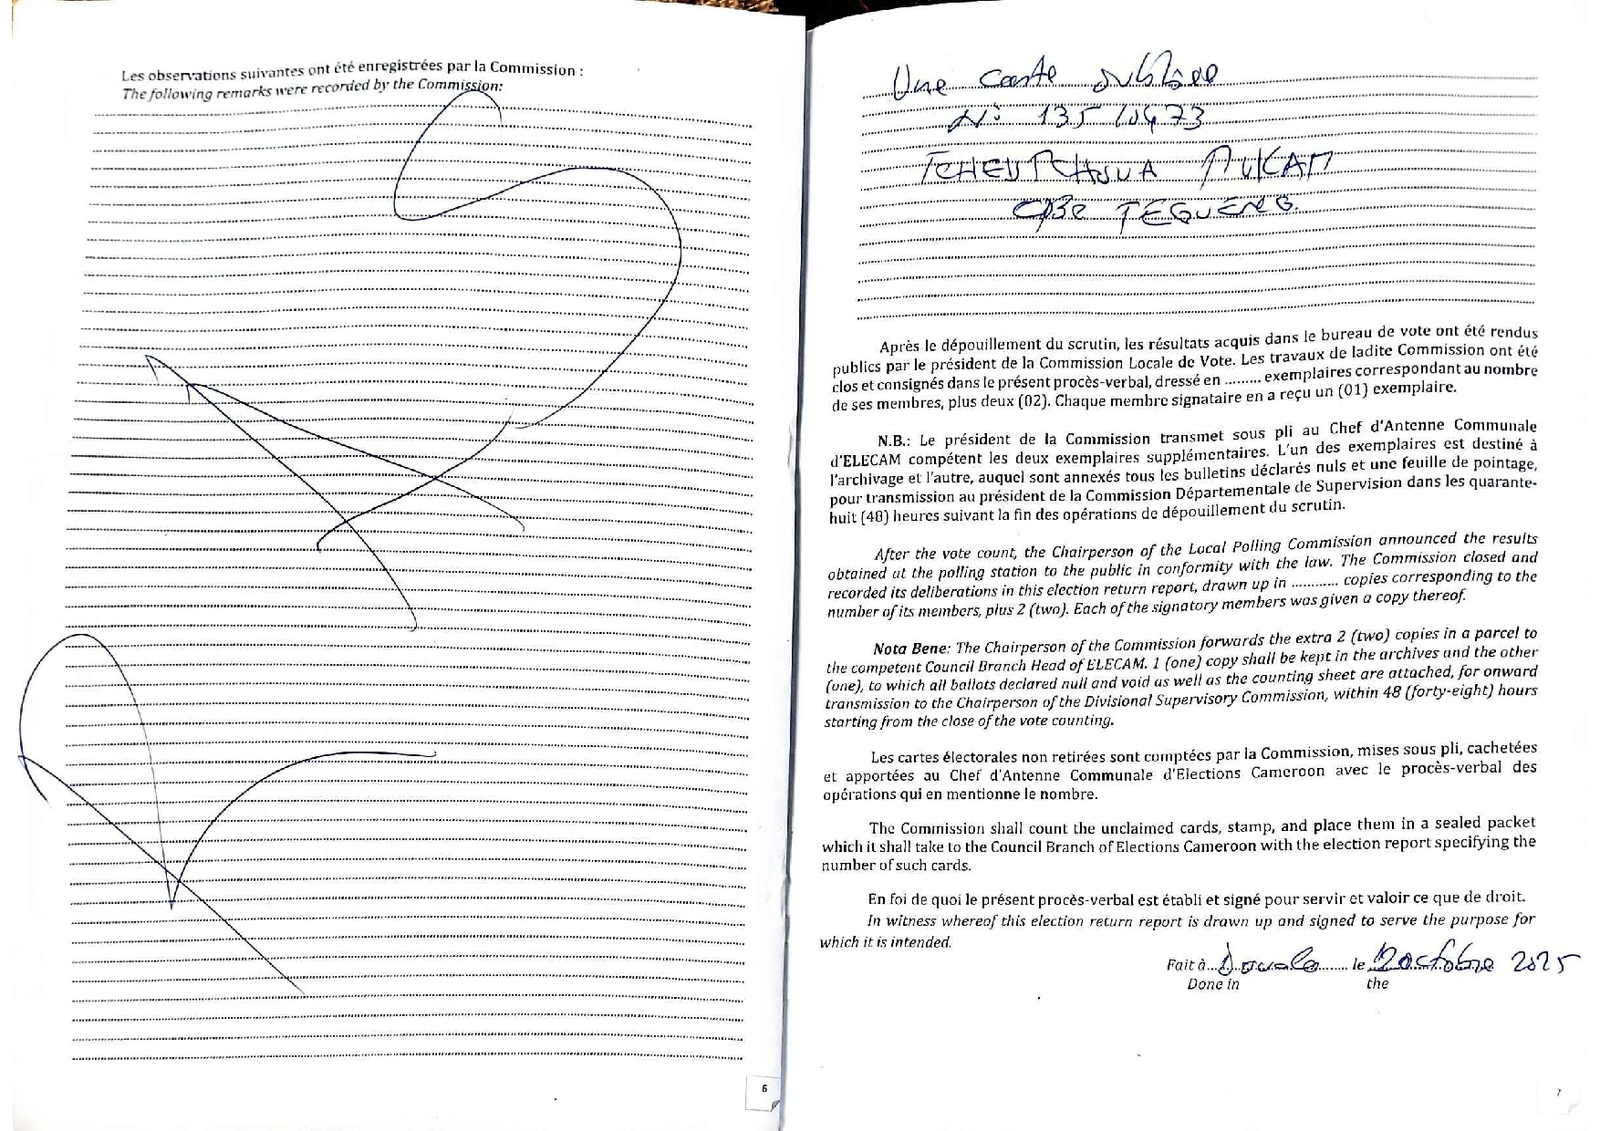 Les observations suivantes ont été enregistrées par la Commission :
The following remarks were recorded by the Commission:
6
Une carte oubliée
N°: 135
TEGUENG.
Après le dépouillement du scrutin, les résultats acquis dans le bureau de vote ont été rendus
publics par le président de la Commission Locale de Vote. Les travaux de ladite Commission ont été
clos et consignés dans le présent procès-verbal, dressé en ......... exemplaires correspondant au nombre
de ses membres, plus deux (02). Chaque membre signataire en a reçu un (01) exemplaire.
N.B.: Le président de la Commission transmet sous pli au Chef d'Antenne Communale
d'ELECAM compétent les deux exemplaires supplémentaires. L'un des exemplaires est destiné à
l'archivage et l'autre, auquel sont annexés tous les bulletins déclarés nuls et une feuille de pointage,
pour transmission au président de la Commission Départementale de Supervision dans les quarante-
huit (48) heures suivant la fin des opérations de dépouillement du scrutin.
After the vote count, the Chairperson of the Local Polling Commission announced the results
obtained at the polling station to the public in conformity with the law. The Commission closed and
recorded its deliberations in this election return report, drawn up in ........... copies corresponding to the
number of its members, plus 2 (two). Each of the signatory members was given a copy thereof.
Nota Bene: The Chairperson of the Commission forwards the extra 2 (two) copies in a parcel to
the competent Council Branch Head of ELECAM. 1 (one) copy shall be kept in the archives and the other
(one), to which all ballots declared null and void as well as the counting sheet are attached, for onward
transmission to the Chairperson of the Divisional Supervisory Commission, within 48 (forty-eight) hours
starting from the close of the vote counting.
Les cartes électorales non retirées sont comptées par la Commission, mises sous pli, cachetées
et apportées au Chef d'Antenne Communale d'Elections Cameroon avec le procès-verbal des
opérations qui en mentionne le nombre.
The Commission shall count the unclaimed cards, stamp, and place them in a sealed packet
which it shall take to the Council Branch of Elections Cameroon with the election report specifying the
number of such cards.
En foi de quoi le présent procès-verbal est établi et signé pour servir et valoir ce que de droit.
In witness whereof this election return report is drawn up and signed to serve the purpose for
which it is intended.
Fait à Douala le 12 octobre 2025
Done in the
7